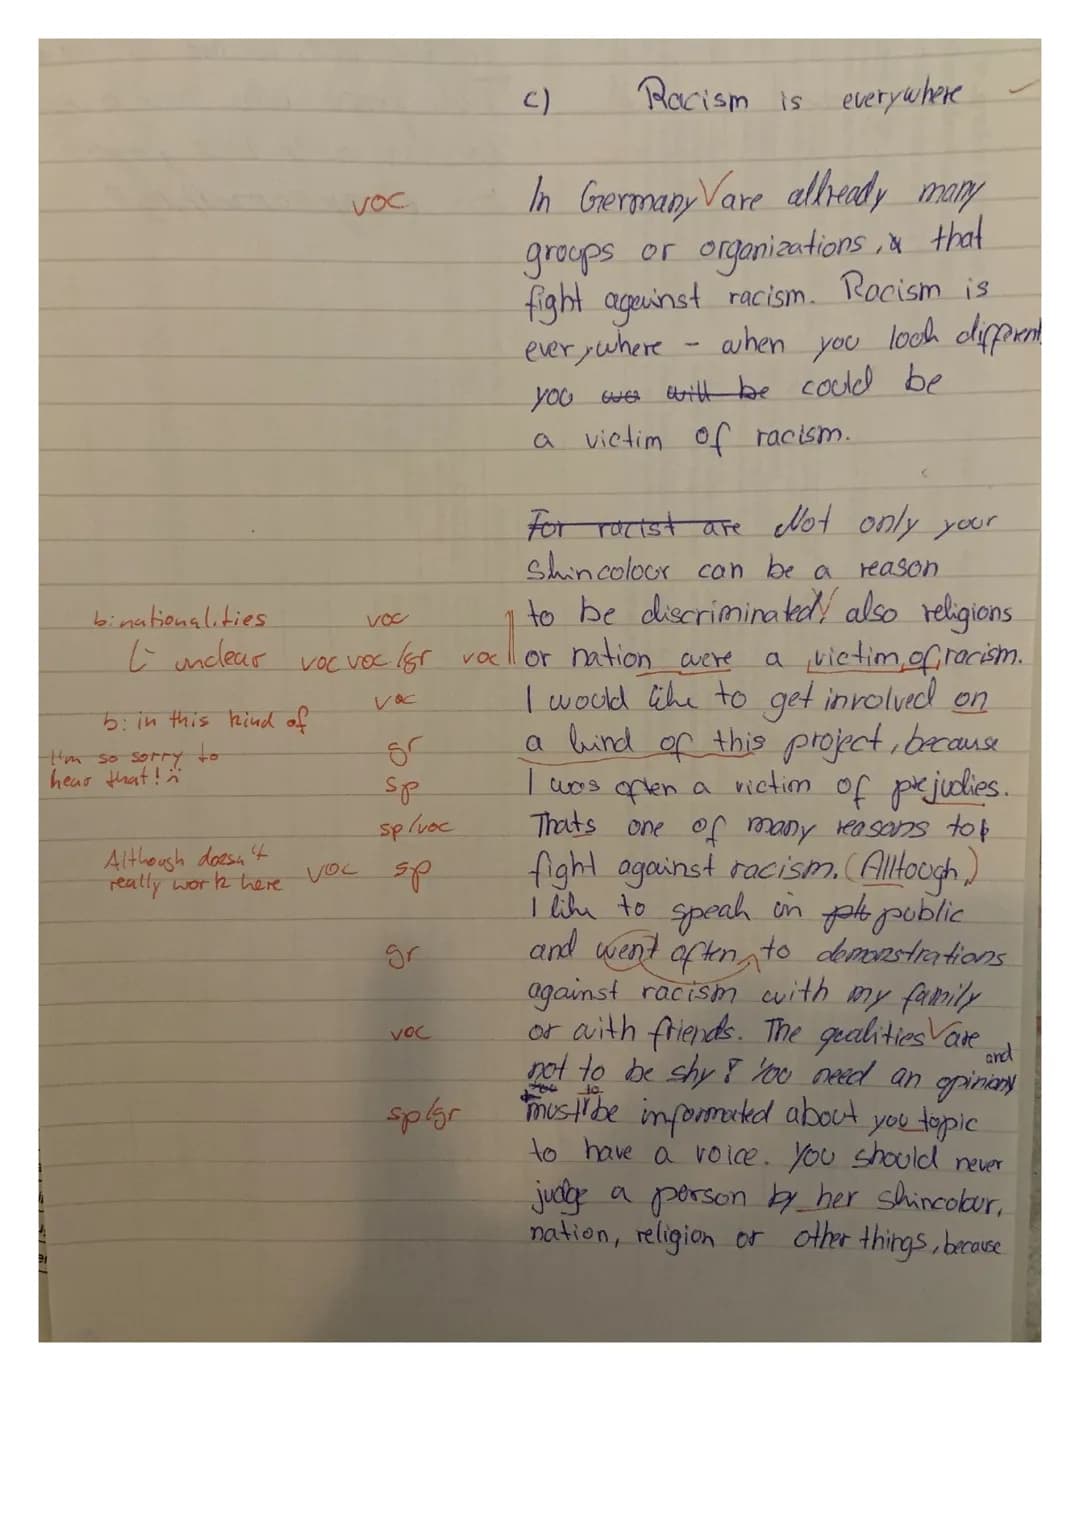 c) Racism is everywhere
voc In Germany V are allready many
groups or organizations, that
fight against racism. Racism is
everywhere - when you look different
you will be could be
a victim of racism.
For racist are Not only your
Skincolour can be a reason
b: nationalities voc to be discriminated V also religions
unclear voc voc/gr voc or nation were a victim of racism.
voc I would like to get involved on
b: in this kind of
gr a kind of this project, because
I'm so sorry to
hear that! sp I was often a victim of prejudies.
sp/voc Thats one of many reasons to
Although doesn't
really work here voc sp fight against racism. (Alltough,)
I like to speak in public
gr and went often to demonstrations
against racism with my family
voc or with friends. The qualities V are
not to be shy! You need an opinion and
sp/gr must to be informated about you topic
to have a voice. You should never
judge a person by her skincolour,
nation, religion or other things, because